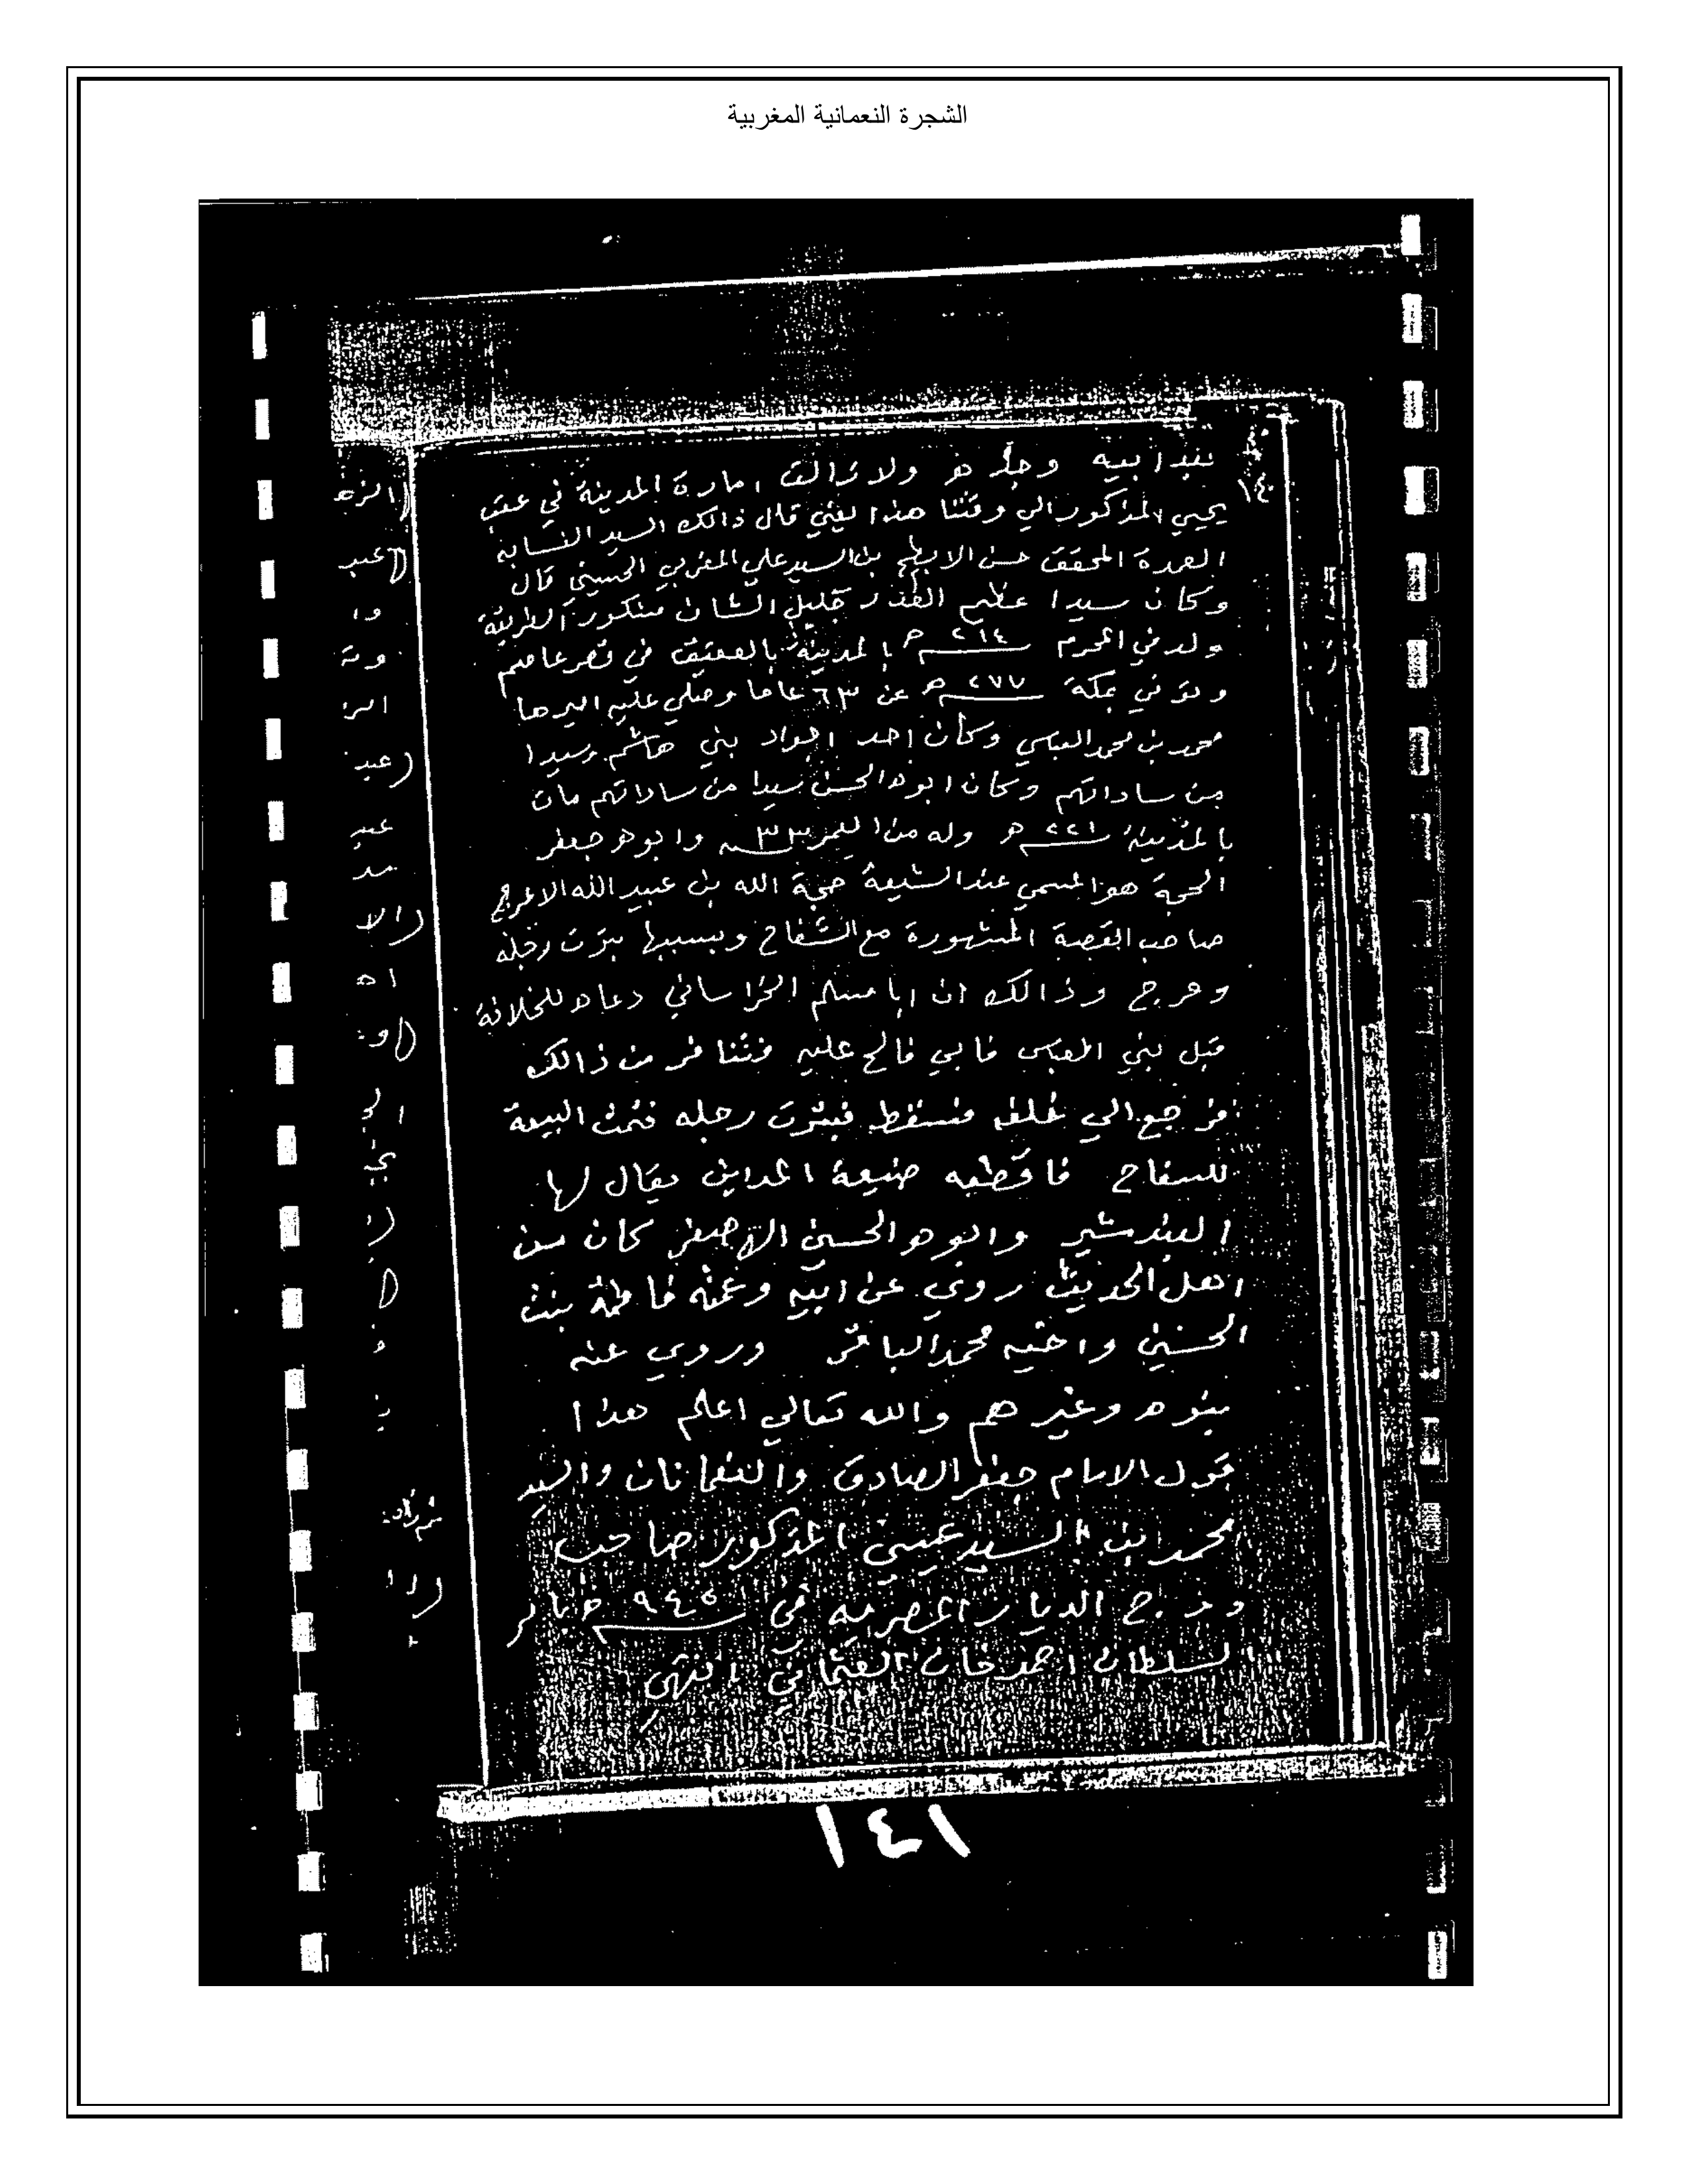 الشجرة النعمانية المغربية
١٤٠
بعد ابيه وجده ولا زالت امارة المدينة في عقب
يحيي المذكور الي وقتنا هذا يعني قال ذالك السيد النسابه
العمدة المحقق حسن الابطح بن السيد علي المغربي الحسيني قال
وكان سيدا عظيم القدر جليل الشان مشكور الطريقة
ولد في المحرم ٢١٤ ه بالمدينة بالعقيق في قصر عاصم
وتوفي بمكة ٢٧٧ ه عن ٦٣ عاما وصلي عليه اميرها
محمد بن محمد العباسي وكان احد اجواد بني هاشم وسيدا
من ساداتهم وكان ابوه الحسن سيدا من ساداتهم مات
بالمدينة ٢٢١ ه وله من العمر ٣٣ وابوه جعفر
الحجة هو المسمي عند الشيعة حجة الله بن عبيد الله الاعرج
صاحب القصة المشهورة مع السفاح وبسببها بترت رجله
وعرج وذالك ان ابا مسلم الخراساني دعاه للخلافة
قبل بني العباس فابي فالح عليه فتنافر من ذالك
فرجع الي خلف فسقط فبترت رجله فتمت البيعة
للسفاح فاقطعه ضيعة المداين يقال لها
البندشير وابوه الحسين الاصغر كان من
اهل الحديث روي عن ابيه وعمته فاطمة بنت
الحسين واخيه محمد الباقر وروي عنه
بنوه وغيرهم والله تعالي اعلم هذا
قول الامام جعفر الصادق والسيد
محمد ابن السيد عيسي المذكور صاحب
الديار المصرية في ٩٤٥
السلطان احمد خان العثماني انتهي
١٤١